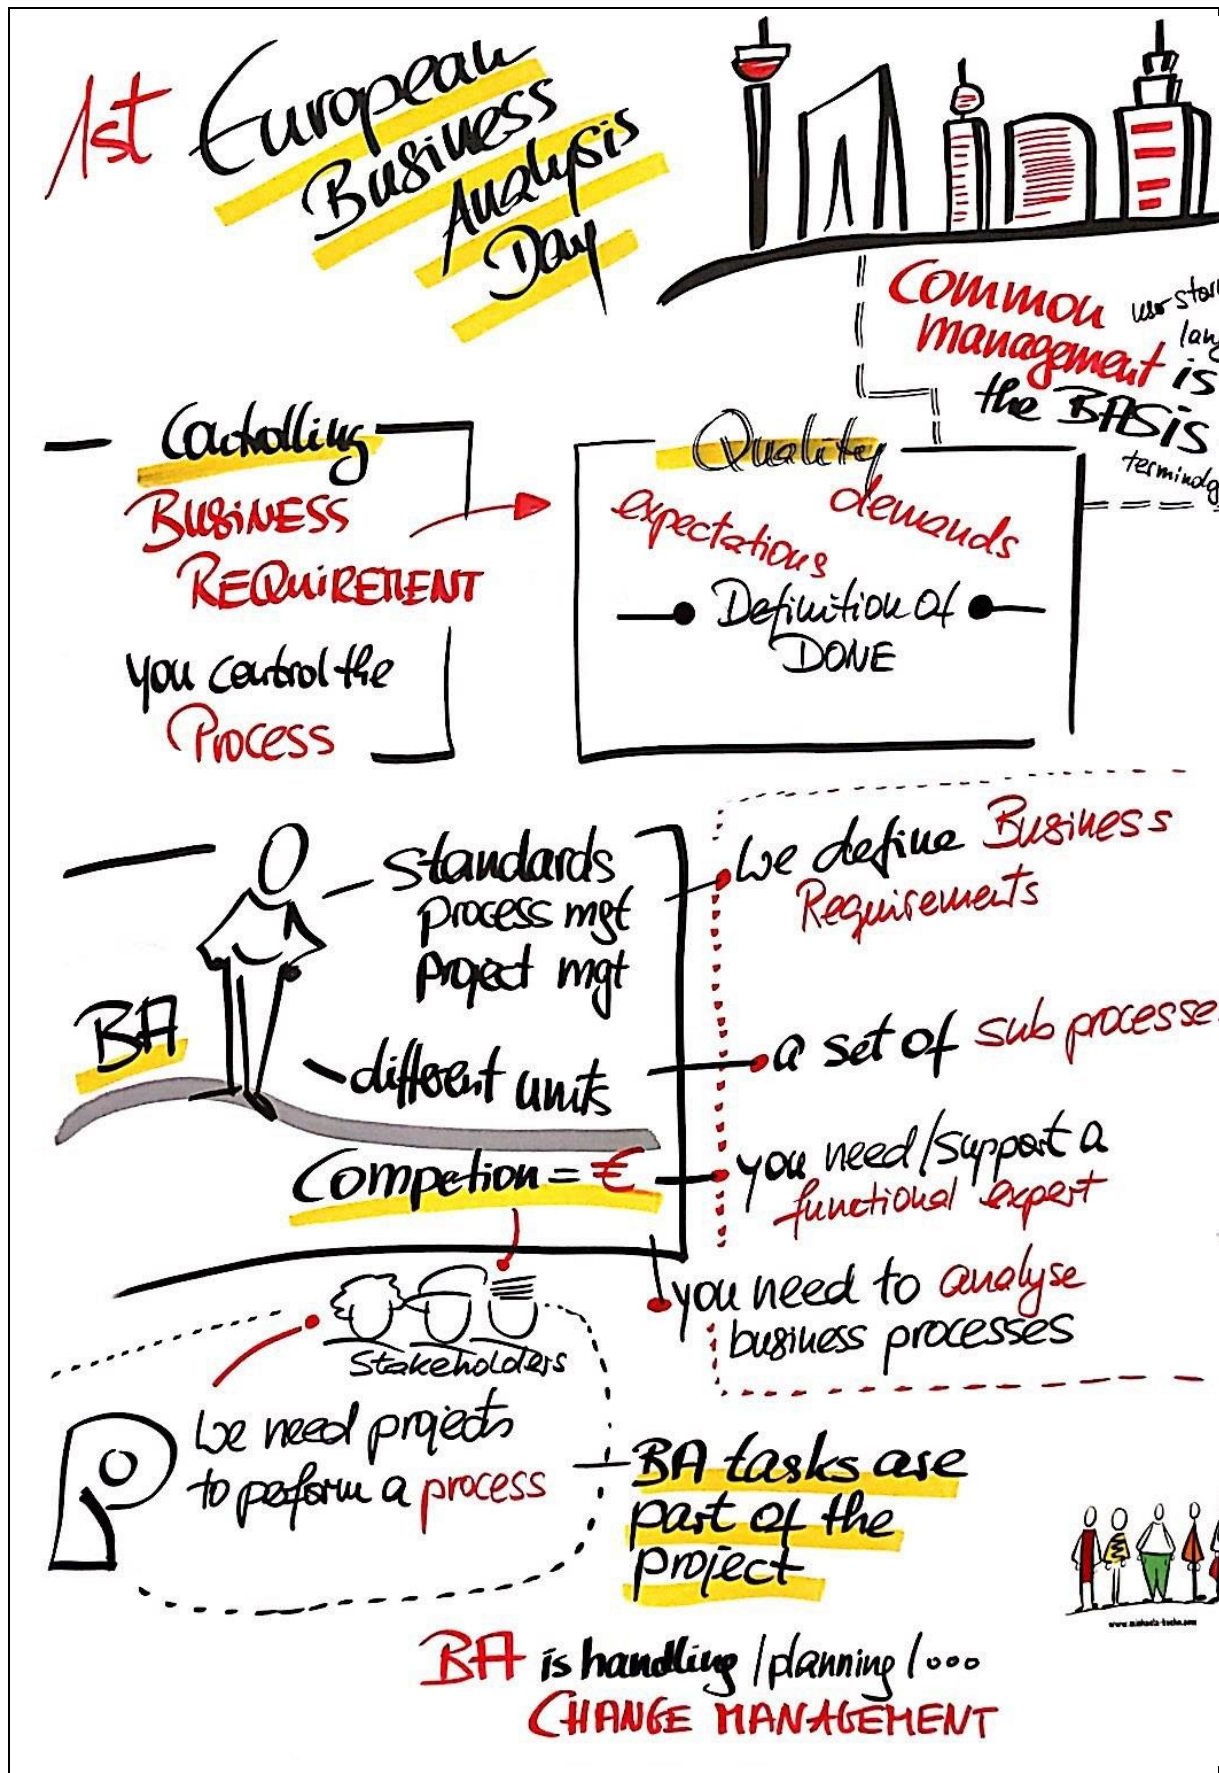 1st European
Business
Analysis
Day
Common
management is
the BASIS
Controlling
BUSINESS
REQUIREMENT
you control the
Process
Quality
expectations
demands
Definition of
DONE
BA
standards
process mgt
project mgt
different units
Competion = €
We define Business
Requirements
a set of sub processe
you need/support a
functional expert
you need to analyse
business processes
Stakeholders
We need projects
to perform a process
BA tasks are
part of the
project
BA is handling / planning / ...
CHANGE MANAGEMENT